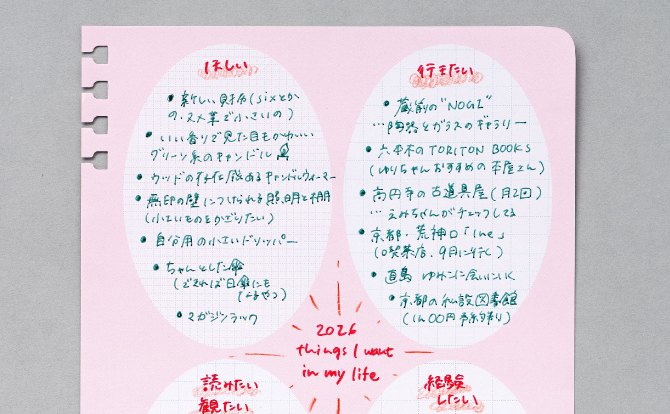 ほしい
新しい財布(sixとか
の、ヌメ革で小さいの)
いい香りで見た目もかわいい
グリーン系のキャンドル
ウッドの存在感あるキャンドルウォーマー
無印の壁につけられる照明と棚
(小さいものとかざりたい)
自分用の小さいドリッパー
ちゃんとした傘
(できれば日傘にも
なるやつ)
マガジンラック
行きたい
蔵前の"NOGI"
…陶器とガラスのギャラリー
六本木のTORITON BOOKS
(ゆりちゃんおすすめの本屋さん)
高円寺の古道具屋(月2回)
…えみちゃんがチェックしてる
京都・荒神口「Ine」
(喫茶店、9月に行く)
直島 ゆみこに会いにいく
京都の私設図書館
(1400円予約制)
2026
things I want
in my life
読みたい
観たい
経験
したい